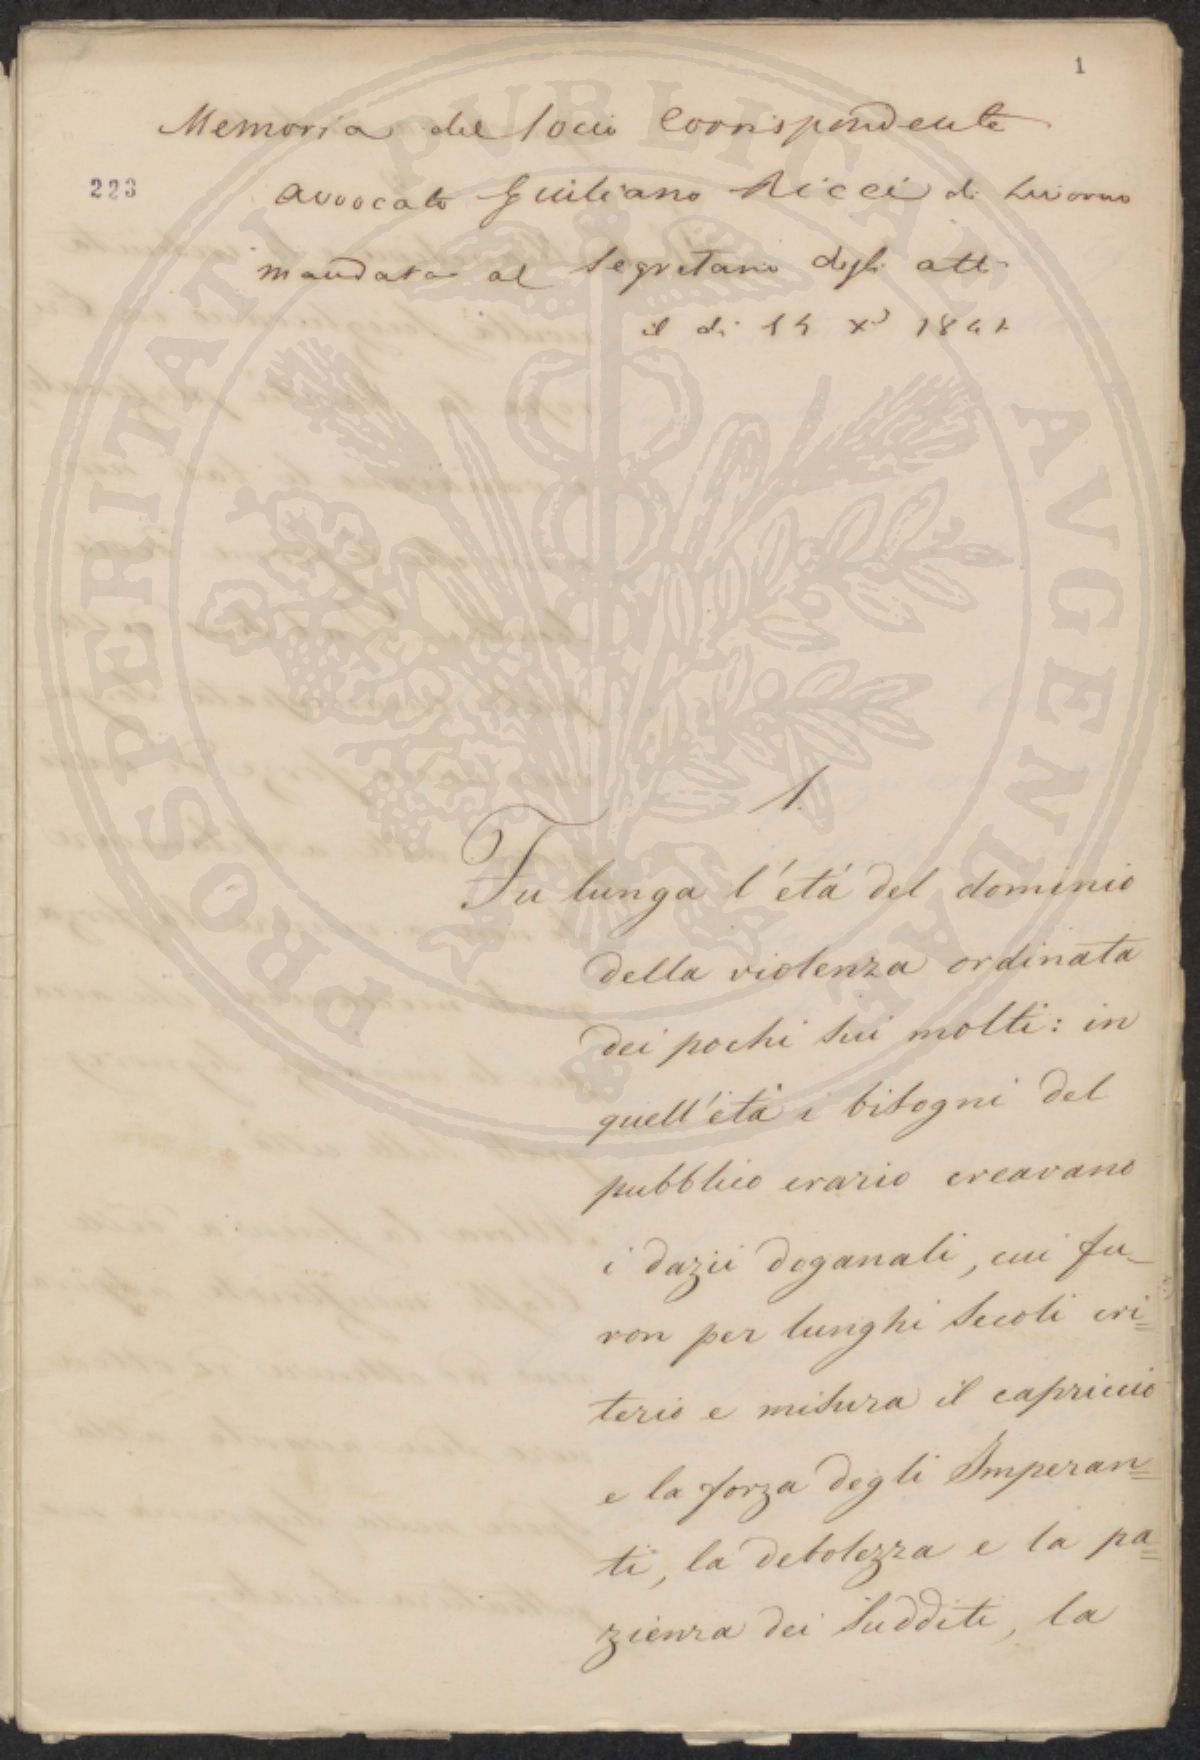 1
Memoria del Socio Corrispondente
223
avvocato Giuliano Ricci di Livorno
mandata al Segretario degli atti
il dì 14 Xbre 1842
1.
Fu lunga l'etá del dominio
della violenza ordinata
dei pochi sui molti: in
quell'età i bisogni del
pubblico erario creavano
i dazii doganali, cui fu-
ron per lunghi secoli cri=
terio e misura il capriccio
e la forza degli Imperan=
ti, la debolezza e la pa=
zienza dei sudditi, la
PROSPERITATI PUBLICAE AVGENDAE